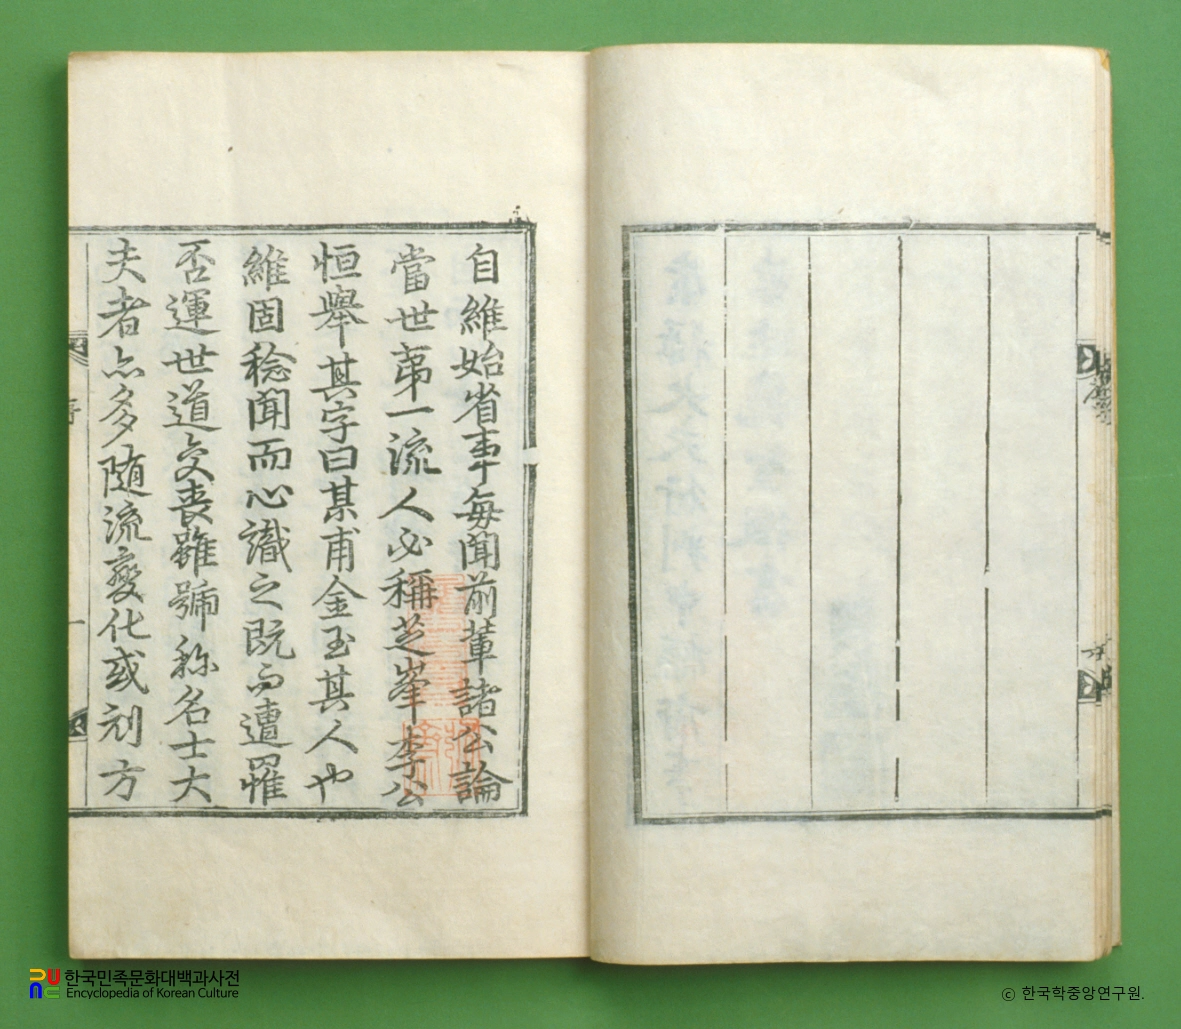 自維始省事每聞前輩諸公論
當世苐一流人必稱芝峯李公
恒舉其字曰某甫金玉其人也
維固稔聞而心識之既而遭罹
否運世道交喪雖號称名士大
夫者亦多随流變化或刓方
序
一
한국민족문화대백과사전
Encyclopedia of Korean Culture
ⓒ 한국학중앙연구원.